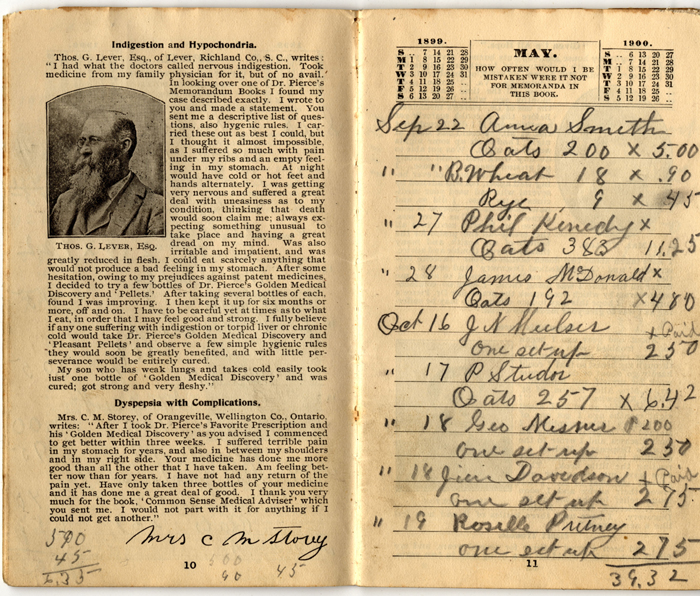 Indigestion and Hypochondria.
Thos. G. Lever, Esq., of Lever, Richland Co., S. C., writes:
"I had what the doctors called nervous indigestion. Took
medicine from my family physician for it, but of no avail.
In looking over one of Dr. Pierce's
Memorandum Books I found my
case described exactly. I wrote to
you and made a statement. You
sent me a descriptive list of ques-
tions, also hygenic rules. I car-
ried these out as best I could, but
I thought it almost impossible,
as I suffered so much with pain
under my ribs and an empty feel-
ing in my stomach. At night
would have cold or hot feet and
hands alternately. I was getting
very nervous and suffered a great
deal with uneasiness as to my
condition, thinking that death
would soon claim me; always ex-
pecting something unusual to
take place and having a great
dread on my mind. Was also
irritable and impatient, and was
THOS. G. LEVER, ESQ.
greatly reduced in flesh. I could eat scarcely anything that
would not produce a bad feeling in my stomach. After some
hesitation, owing to my prejudices against patent medicines,
I decided to try a few bottles of Dr. Pierce's Golden Medical
Discovery and 'Pellets.' After taking several bottles of each,
found I was improving. I then kept it up for six months or
more, off and on. I have to be careful yet at times as to what
I eat, in order that I may feel good and strong. I fully believe
if any one suffering with indigestion or torpid liver or chronic
cold would take Dr. Pierce's Golden Medical Discovery and
'Pleasant Pellets' and observe a few simple hygienic rules
they would soon be greatly benefited, and with little per-
severance would be entirely cured.
My son who has weak lungs and takes cold easily took
just one bottle of 'Golden Medical Discovery' and was
cured; got strong and very fleshy."
Dyspepsia with Complications.
Mrs. C. M. Storey, of Orangeville, Wellington Co., Ontario,
writes: "After I took Dr. Pierce's Favorite Prescription and
his 'Golden Medical Discovery' as you advised I commenced
to get better within three weeks. I suffered terrible pain
in my stomach for years, and also in between my shoulders
and in my right side. Your medicine has done me more
good than all the other that I have taken. Am feeling bet-
ter now than for years. I have not had any return of the
pain yet. Have only taken three bottles of your medicine
and it has done me a great deal of good. I thank you very
much for the book, 'Common Sense Medical Adviser' which
you sent me. I would not part with it for anything if I
could not get another."
Mrs C M Storey
590
45
6.35
10
500
90 45
1899.
S .. 7 14 21 28
M 1 8 15 22 29
T 2 9 16 23 30
W 3 10 17 24 31
T 4 11 18 25 ..
F 5 12 19 26 ..
S 6 13 20 27 ..
MAY.
HOW OFTEN WOULD I BE
MISTAKEN WERE IT NOT
FOR MEMORANDA IN
THIS BOOK.
1900.
S .. 6 13 20 27
M .. 7 14 21 28
T 1 8 15 22 29
W 2 9 16 23 30
T 3 10 17 24 31
F 4 11 18 25 ..
S 5 12 19 26 ..
Sep 22 Anna Smith
Oats 200 x 5.00
" " B. Wheat 18 x .90
Rye 9 x 45
" 27 Phil Kenedy x
Oats 383 11.25
" 28 James McDonald x
Oats 192 x 480
Oct 16 J N
x Paid
one set up 250
" 17 P Studor
Oats 257 x 6.42
" 18 Geo Mesner 200
one set up 250
" 18 Jim Davidson x Paid
one set up 275
" 19 Roselle Putney
one set up 275
39.32
11